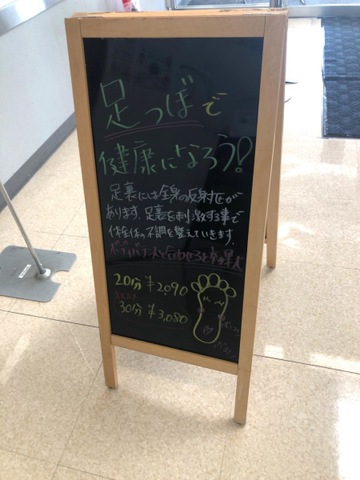 足つぼで
健康になろう!
足裏には全身の反射区が
あります。足裏を刺激する事で
体全体の不調を整えていきます。
20分 ¥2,090
30分 ¥3,080